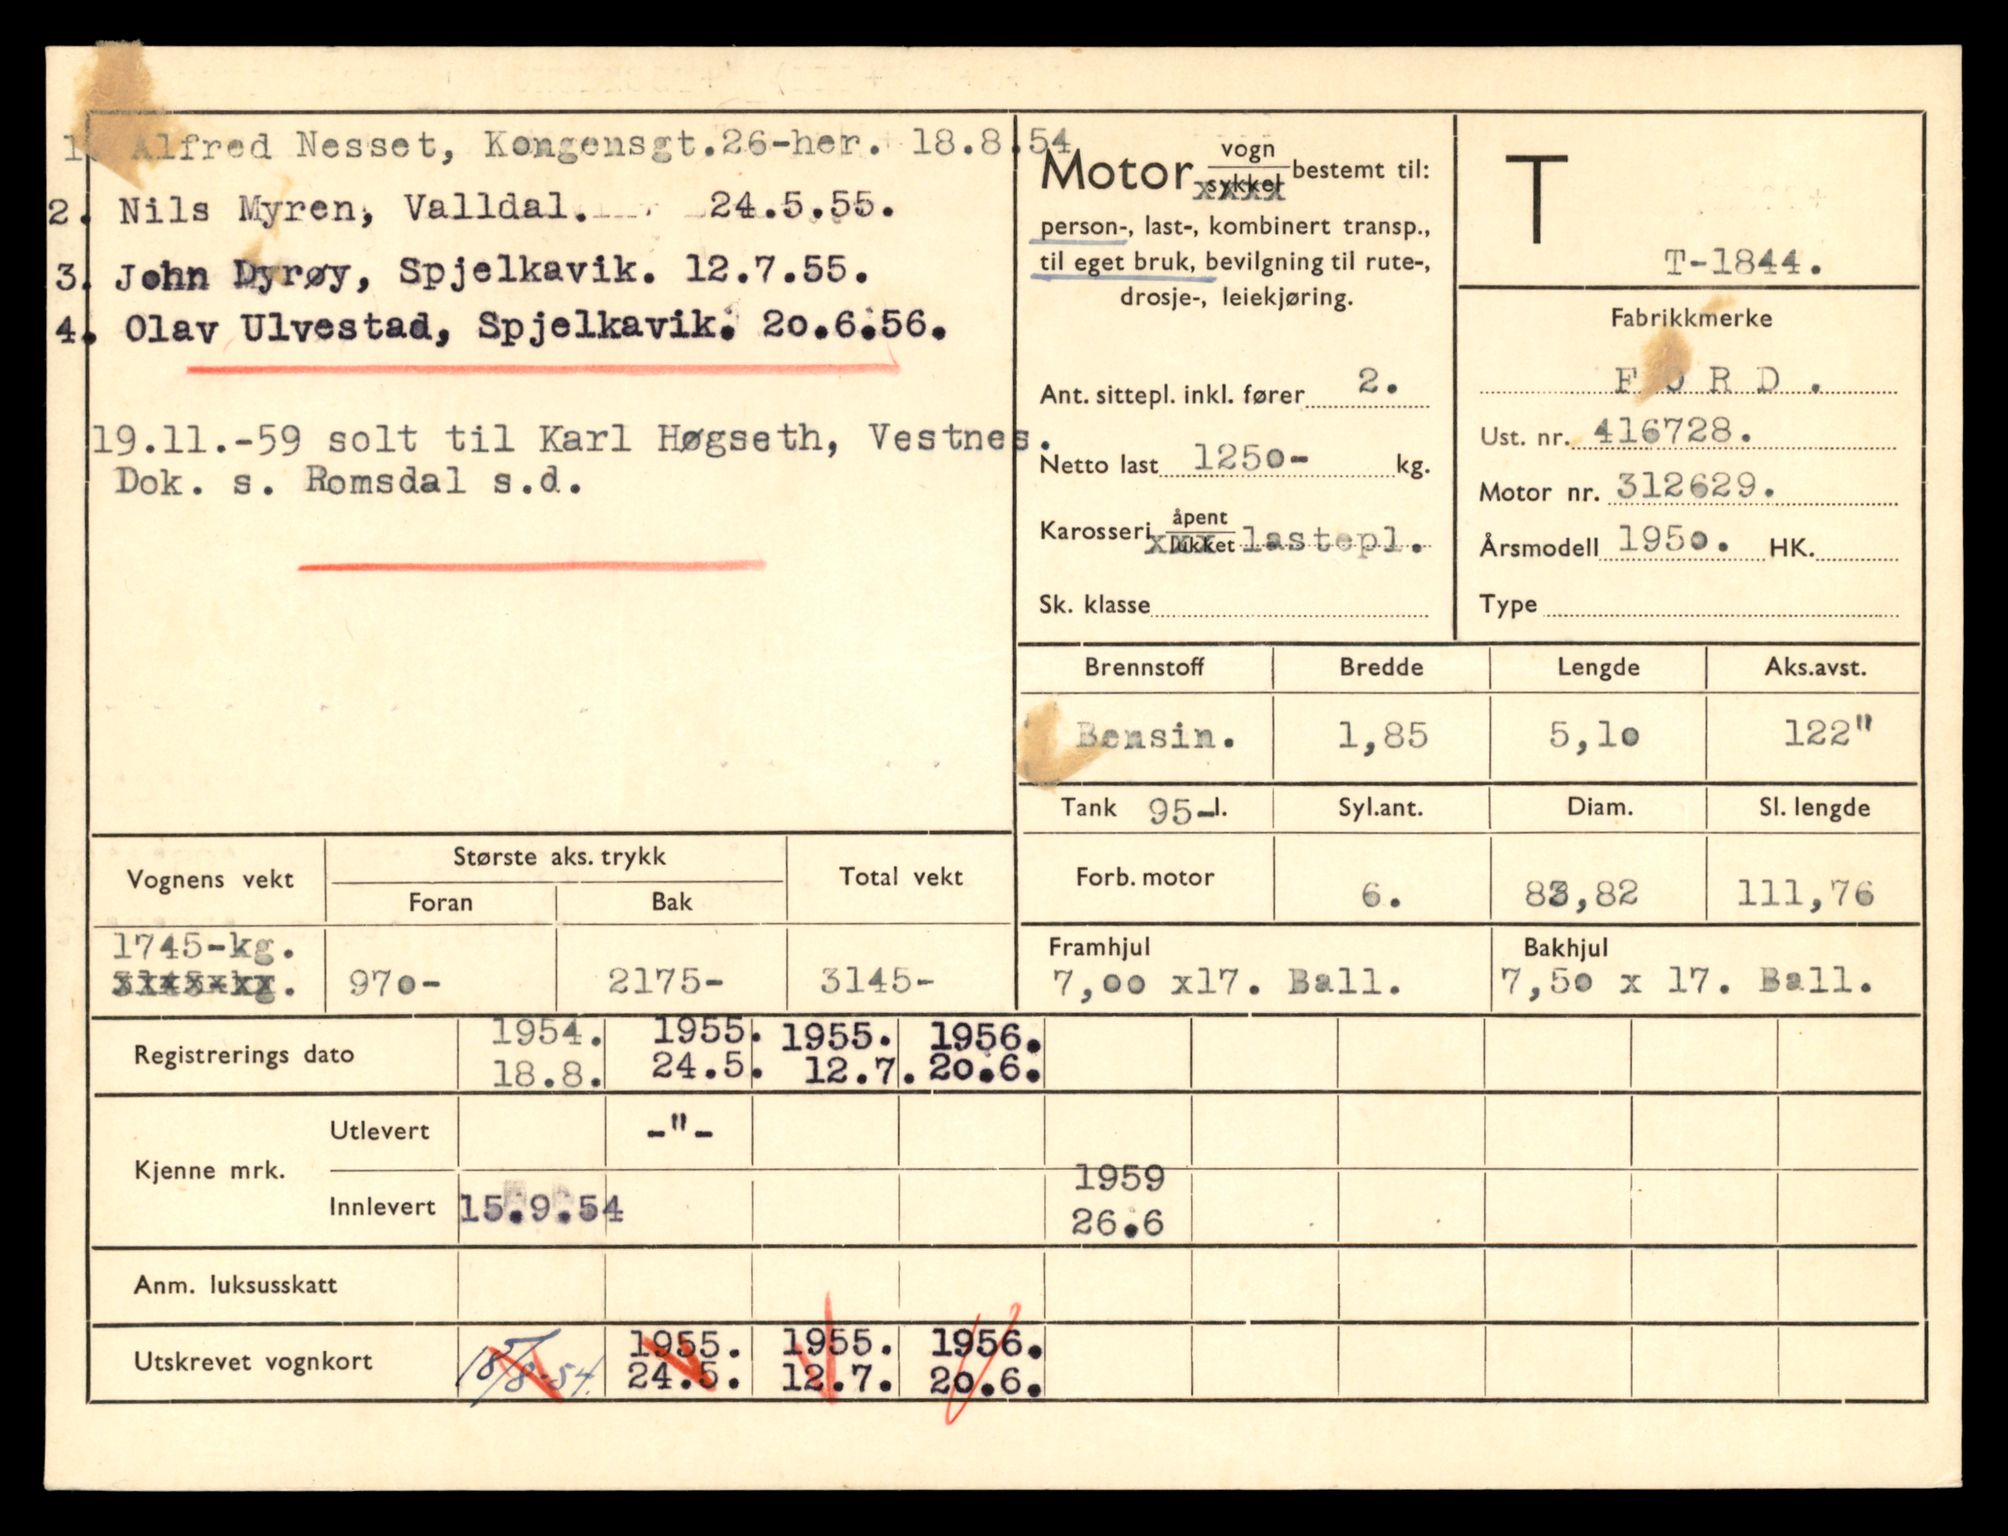 1. Alfred Nesset, Kongensgt.26-her. 18.8.54
2. Nils Myren, Valldal. 24.5.55.
3. John Dyrøy, Spjelkavik. 12.7.55.
4. Olav Ulvestad, Spjelkavik. 20.6.56.
19.11.-59 solt til Karl Høgseth, Vestnes.
Dok. s. Romsdal s.d.
Motor vogn sykkel bestemt til:
person-, last-, kombinert transp.,
til eget bruk, bevilgning til rute-,
drosje-, leiekjøring.
Ant. sittepl. inkl. fører 2.
Netto last 1250- kg.
Karosseri åpent lukket lastepl.
Sk. klasse
T
T-1844.
Fabrikkmerke
FORD.
Ust. nr. 416728.
Motor nr. 312629.
Årsmodell 1950. HK.
Type
Brennstoff Bredde Lengde Aks.avst.
Bensin. 1,85 5,10 122"
Tank 95-l. Syl.ant. Diam. Sl. lengde
Forb. motor 6. 83,82 111,76
Framhjul Bakhjul
7,00 x17. Ball. 7,50 x 17. Ball.
Vognens vekt Største aks. trykk Total vekt
Foran Bak
1745-kg.
3145-kg. 970- 2175- 3145-
Registrerings dato 1954. 1955. 1955. 1956.
18.8. 24.5. 12.7. 20.6.
Kjenne mrk.
Utlevert -"-
Innlevert 15.9.54 1959
26.6
Anm. luksusskatt
Utskrevet vognkort 18/8-54. 1955. 1955. 1956.
24.5. 12.7. 20.6.